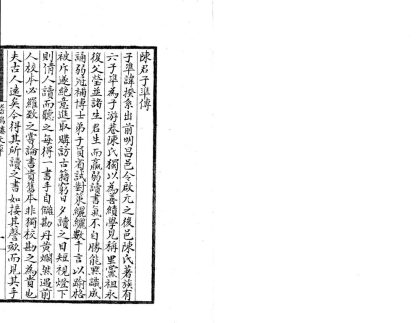 陳君子準傳
子準諱揆系出前明昌邑令啟元之後邑陳氏著族有
六子準為子游巷陳氏獨以為善績學見稱里黨祖永
後父瑩並諸生君生而羸弱讀書氣不自勝能默識成
誦弱冠補博士弟子員省試對策纚纚數千言以踰格
被斥遂絕意進取購訪古籍窮日夕讀之日短視燈下
則倩人讀而聽之每得一書手自讎勘丹黃爛然遇前
人校本必羅致之嘗論書貴舊本非獨校勘之為貴也
夫古人遠矣今得其所讀之書如接其謦欬而見其手